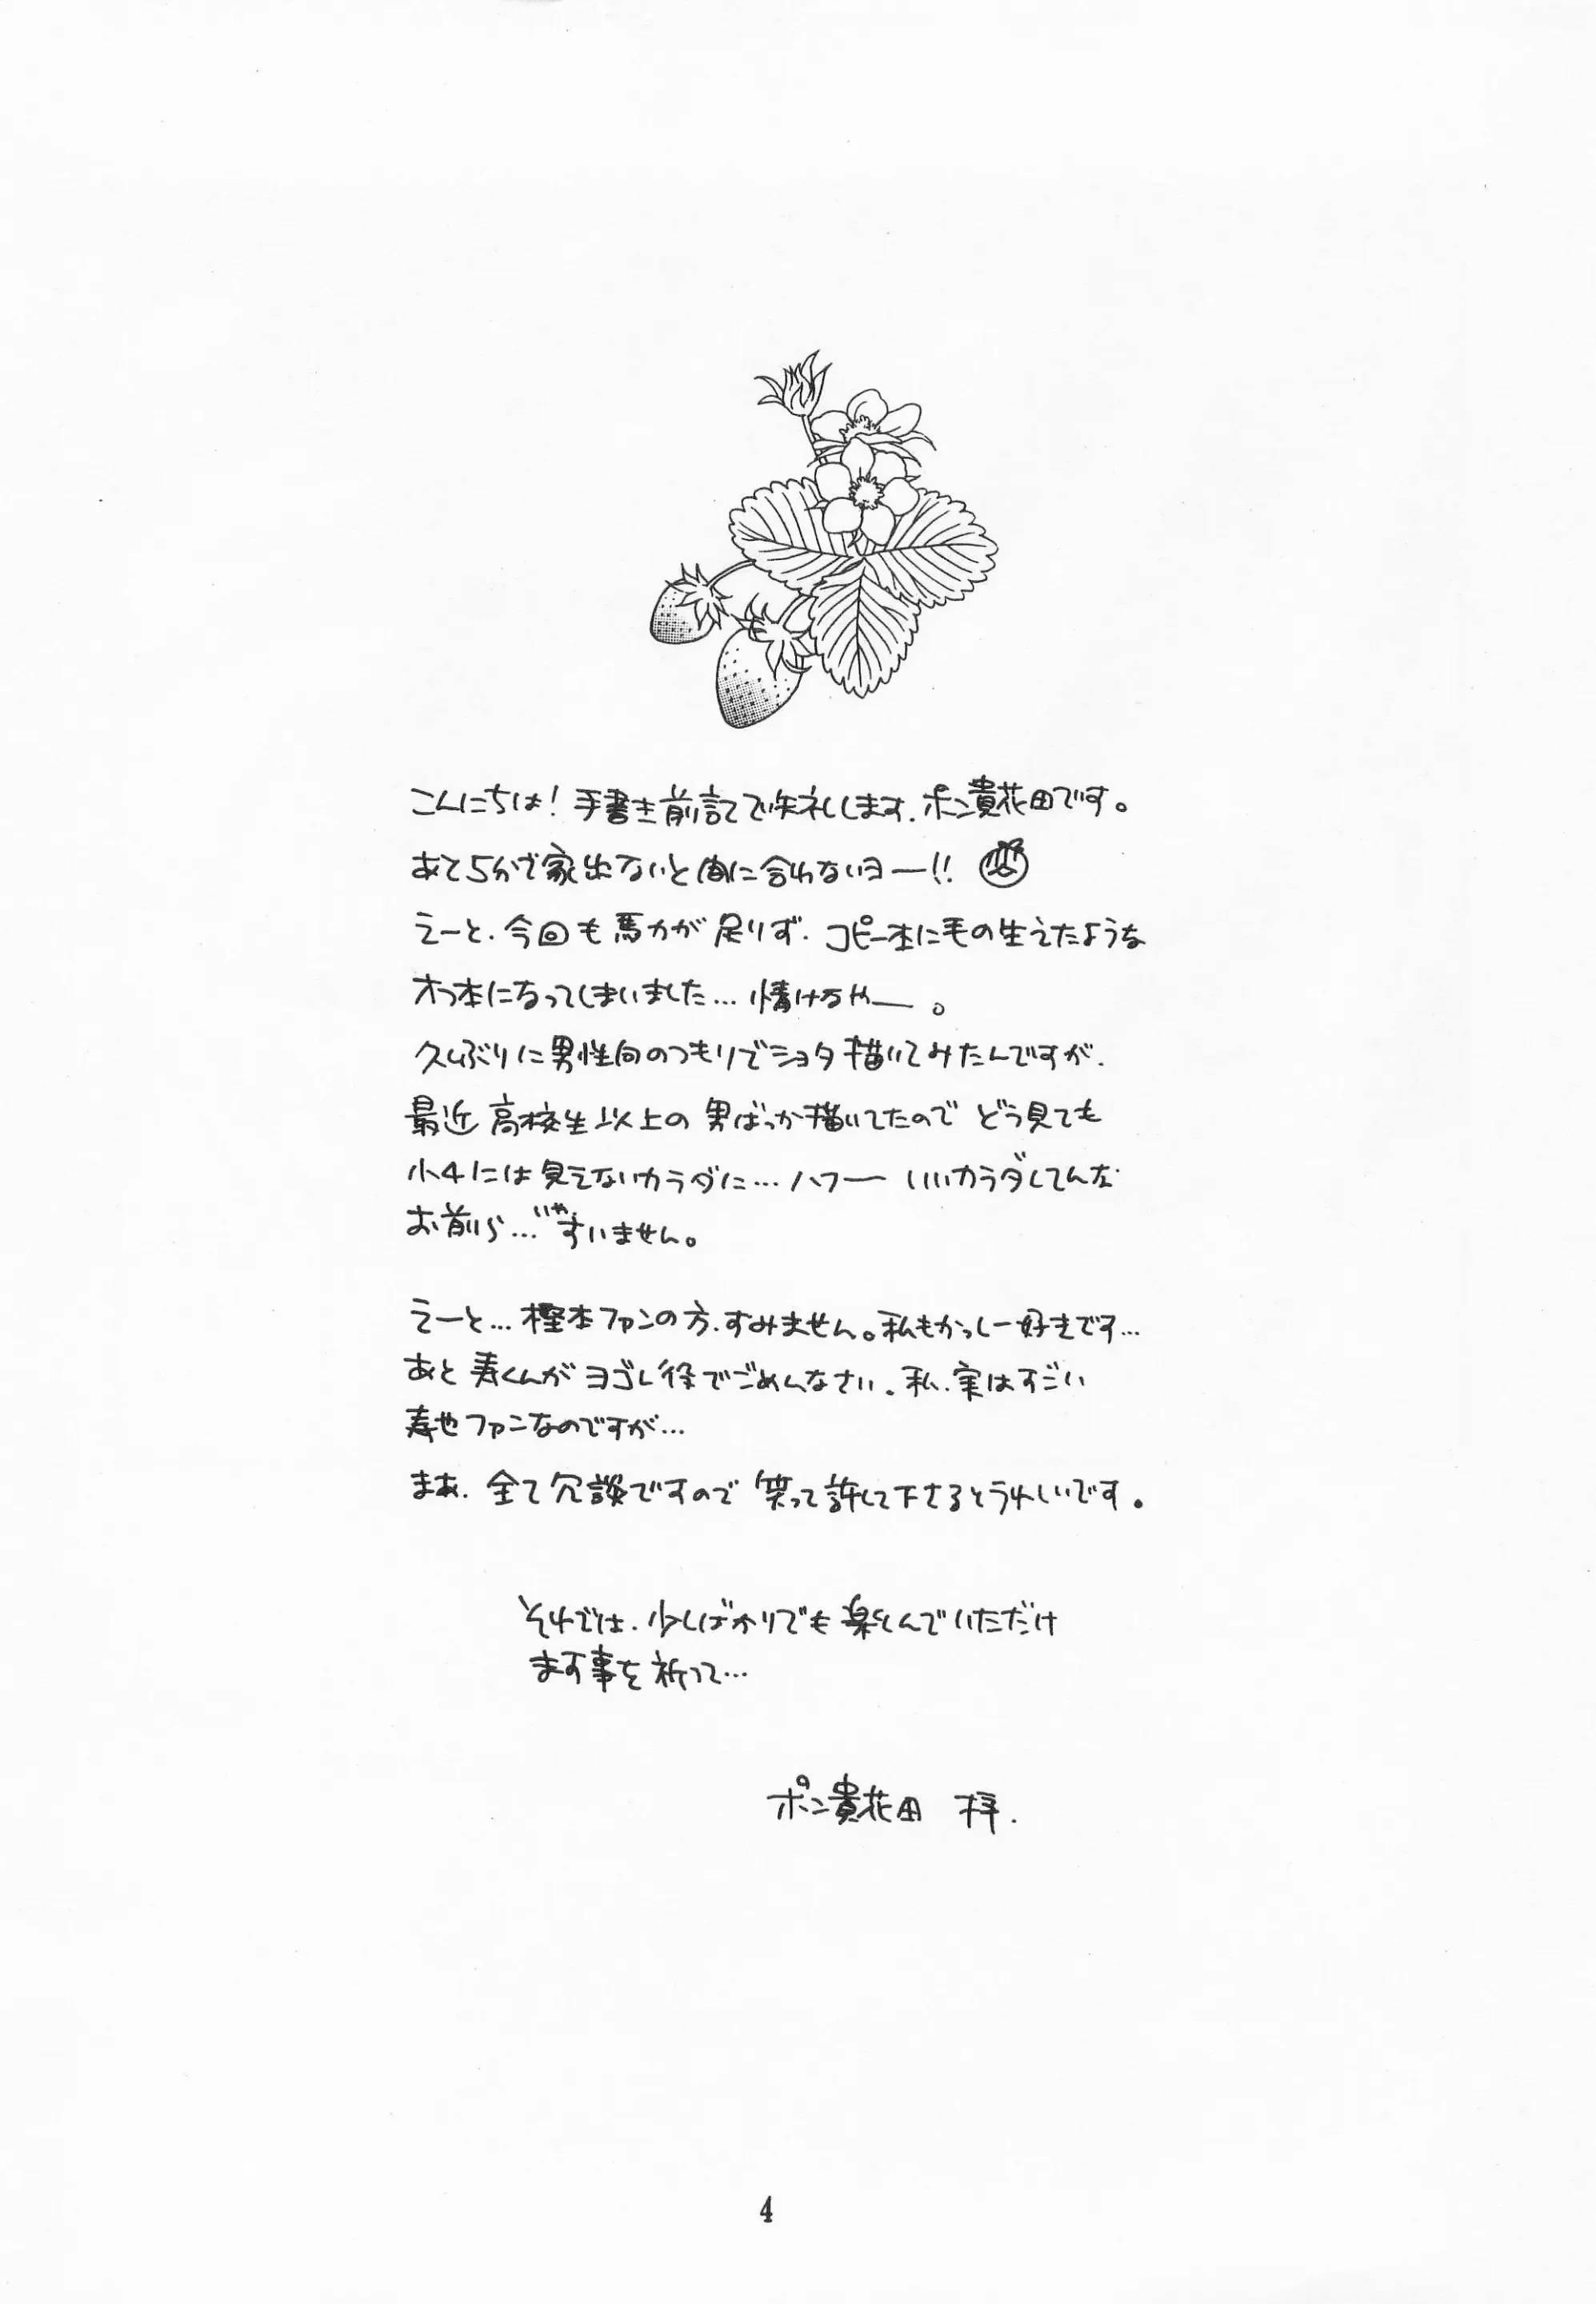 こんにちは！手書き前記で失礼します、ポン貴花田です。
あと5分で家出ないと間に合わないヨー!!
えーと、今回も馬力が足りず、コピー本に毛の生えたような
オフ本になってしまいました…情けなやー。
久しぶりに男性向のつもりでショタ描いてみたんですが、
最近高校生以上の男ばっか描いてたのでどう見ても
小4には見えないカラダに…ハフー いいカラダしてんな
お前ら…いや、すいません。
えーと…樫本ファンの方、すみません。私もかっしー好きです…
あと寿くんがヨゴレ役でごめんなさい。私、実はすごい
寿也ファンなのですが…
まあ、全て冗談ですので笑って許して下さるとうれしいです。
それでは、少しばかりでも楽しんでいただけ
ます事を祈って…
ポン貴花田 拝.
4